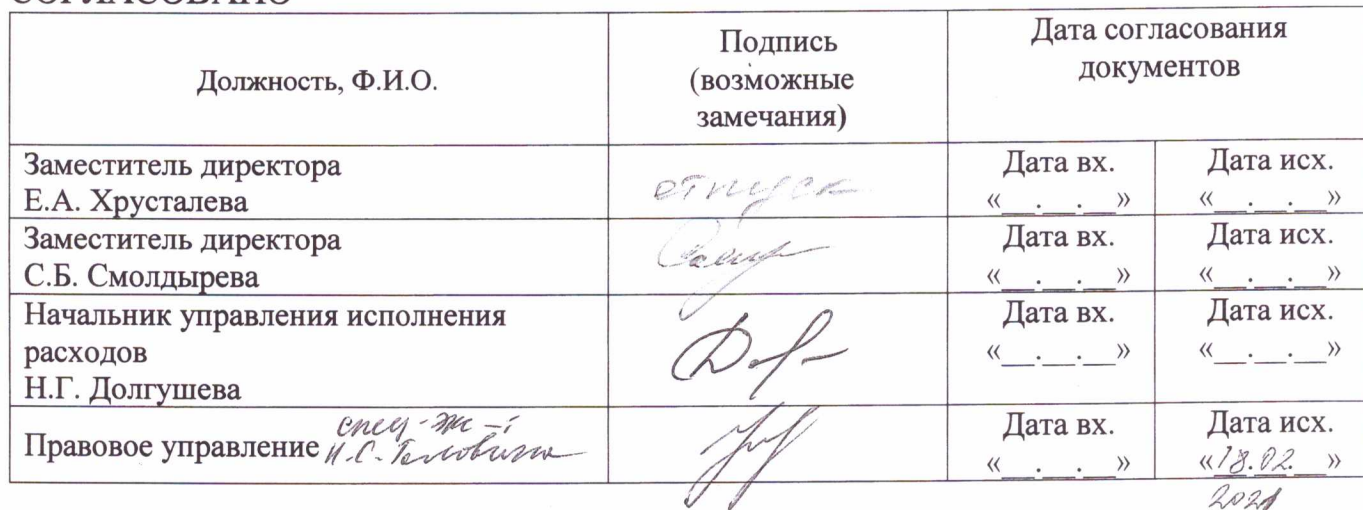 СОГЛАСОВАНО
Должность, Ф.И.О.
Подпись
(возможные
замечания)
Дата согласования
документов
Заместитель директора
Е.А. Хрусталева
отпуск
Дата вх.
«__.__.__»
Дата исх.
«__.__.__»
Заместитель директора
С.Б. Смолдырева
Дата вх.
«__.__.__»
Дата исх.
«__.__.__»
Начальник управления исполнения
расходов
Н.Г. Долгушева
Дата вх.
«__.__.__»
Дата исх.
«__.__.__»
Правовое управление
Дата вх.
«__.__.__»
Дата исх.
«18.02.__»
2021